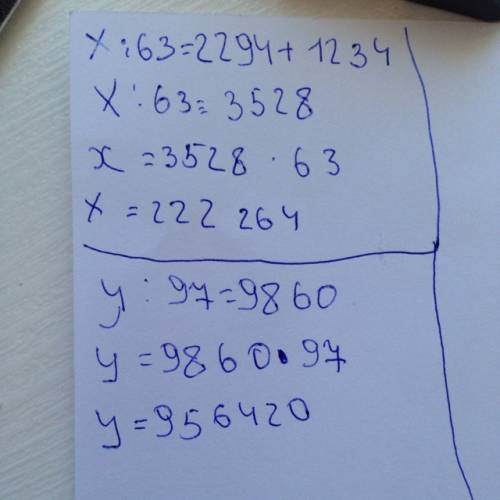 x : 63 = 2294 + 1234
x : 63 = 3528
x = 3528 · 63
x = 222 264
y : 97 = 9860
y = 9860 · 97
y = 956420